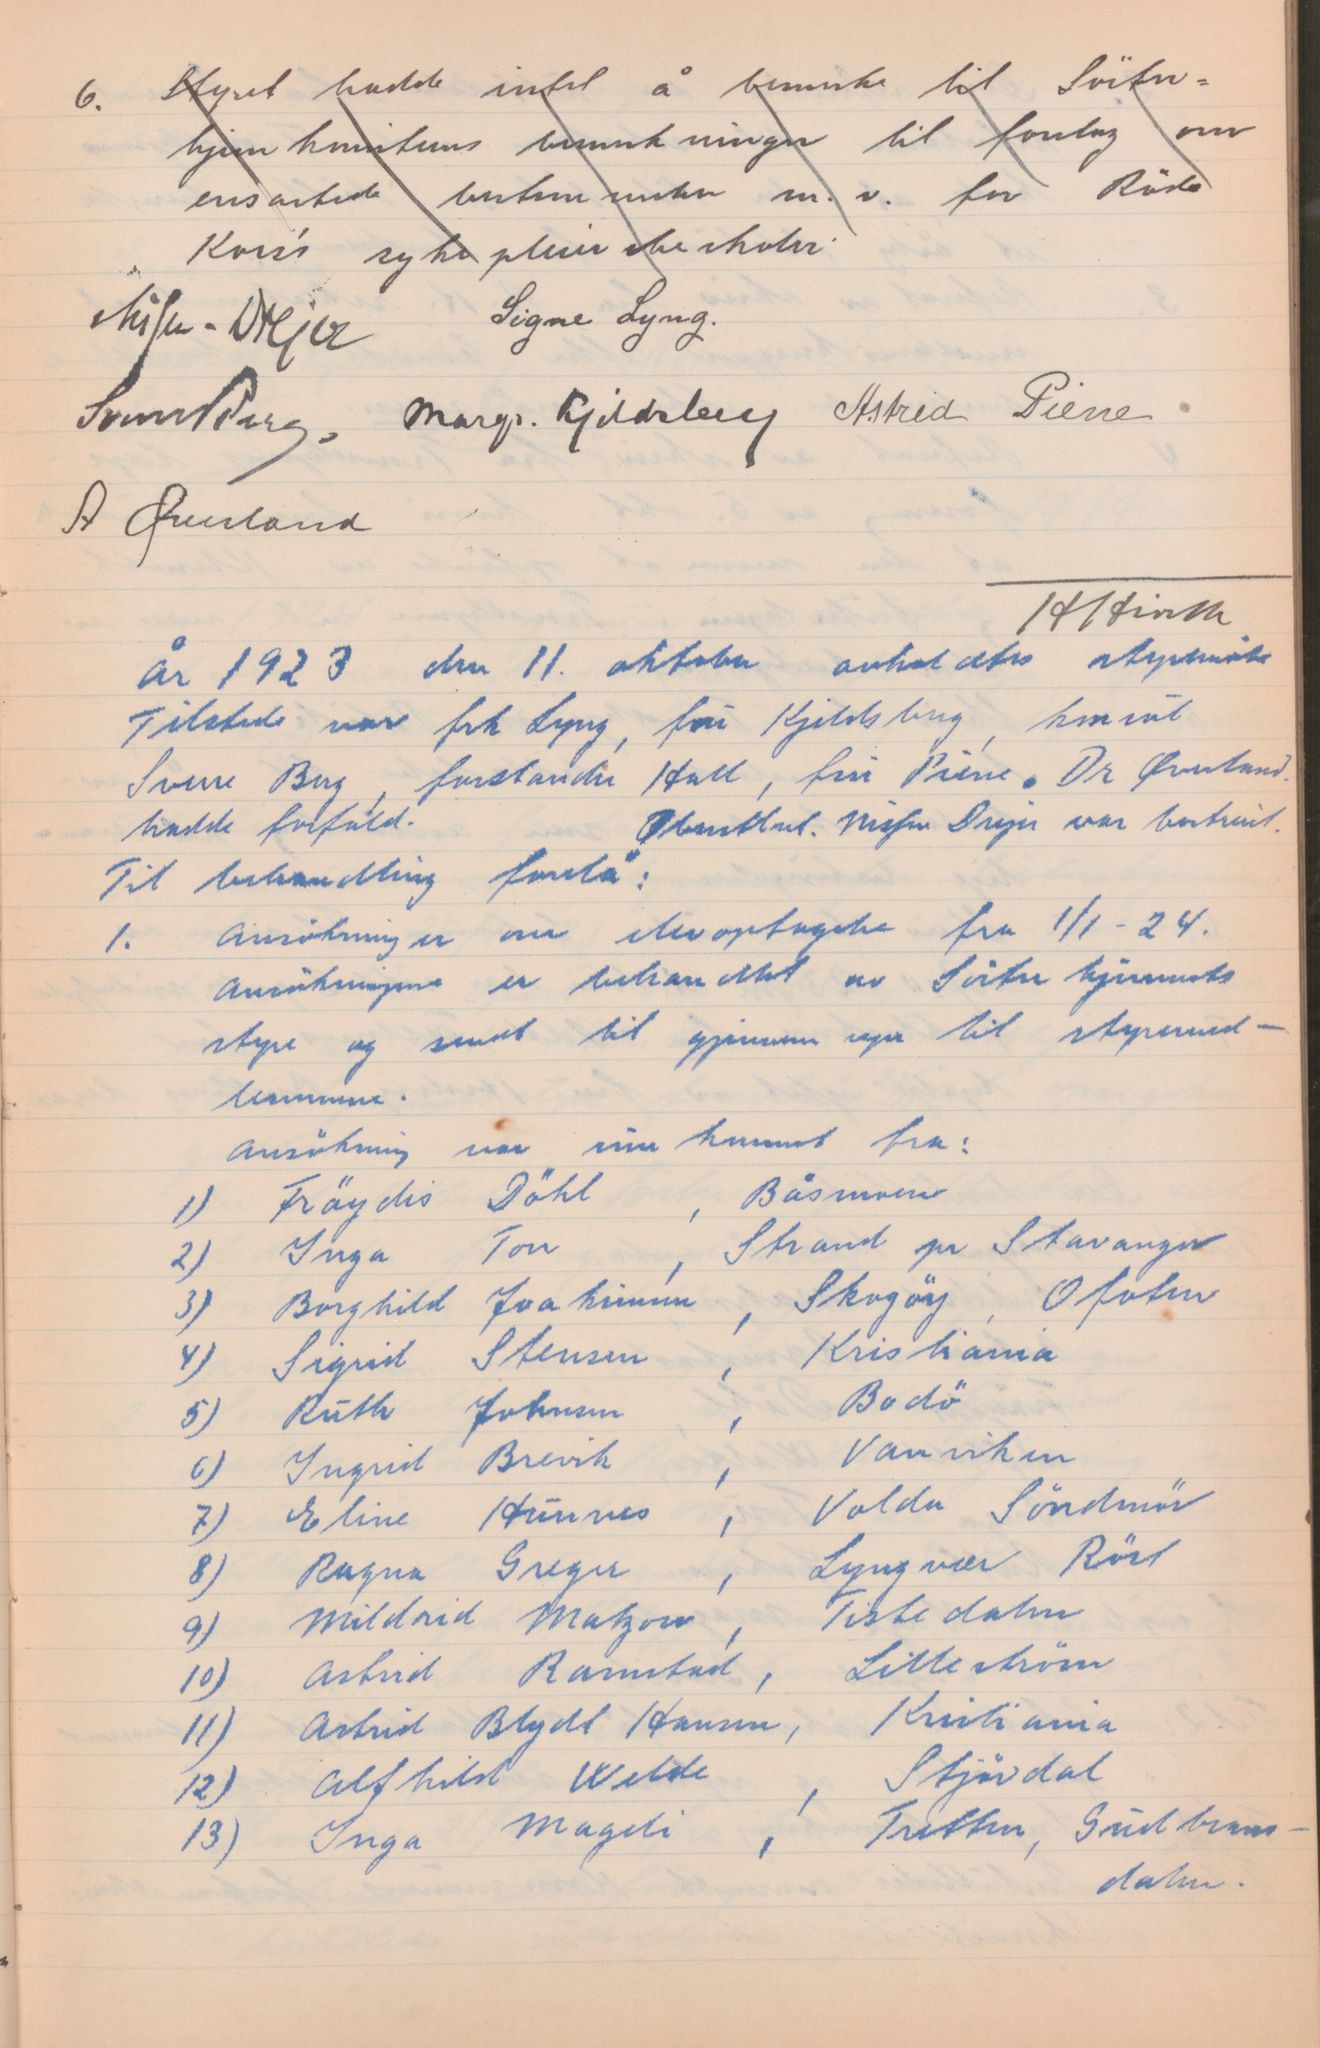 6. Styret hadde intet å bemerke til Söster=
hjemkomiteens bemerkninger til forslag om
ensartede bestemmelser m.v. for Röde
Kors's sykepleierskeskoler.
Nissen-Drejer Signe Lyng.
Sverre Berg. Margr. Kjeldsberg Astrid Piene
A Øverland
H Hirsch
År 1923 den 11. oktober avholdtes styremöte
Tilstede var frk Lyng, frü Kjeldsberg, konsül
Sverre Berg, forstander Hall, frü Piene. Dr Øverland.
hadde forfald. Oberstlöit. Nissen Drejer var bortreist.
Til behandling forelå:
1. Ansökninger om elevoptagelse fra 1/1-24.
Ansökningene er behandlet av Sösterhjemmets
styre og sendt til gjennemsyn til styremed-
lemmene.
Ansökning var innkommet fra:
1) Fröydis Döhl , Båsmoen
2) Inga Tou , Strand pr Stavanger
3) Borghild Joakimsen , Skogöy, Ofoten
4) Sigrid Stensen , Kristiania
5) Rüth Johnsen , Bodö
6) Ingrid Brevik , Vanviken
7) Eline Hünnes , Volda Söndmör
8) Ragna Greger , Lyngvær Röst
9) Mildrid Matzow , Tistedalen
10) Astrid Ramstad , Lilleström
11) Astrid Blydt Hansen, Kristiania
12) Alfhild Welde , Stjördal
13) Inga Mageli , Tretten, Güdbrans-
dalen.